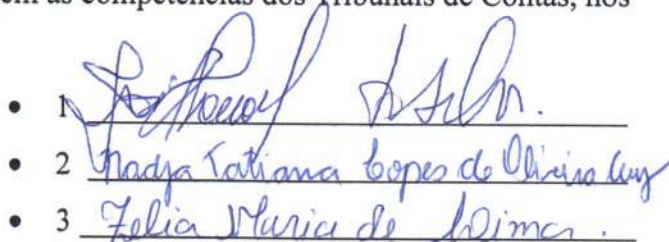 em as competências dos Tribunais de Contas, nos
• 1
• 2 Nadja Tatiana Lopes de Oliveira
• 3 Zelia Maria de Lima.